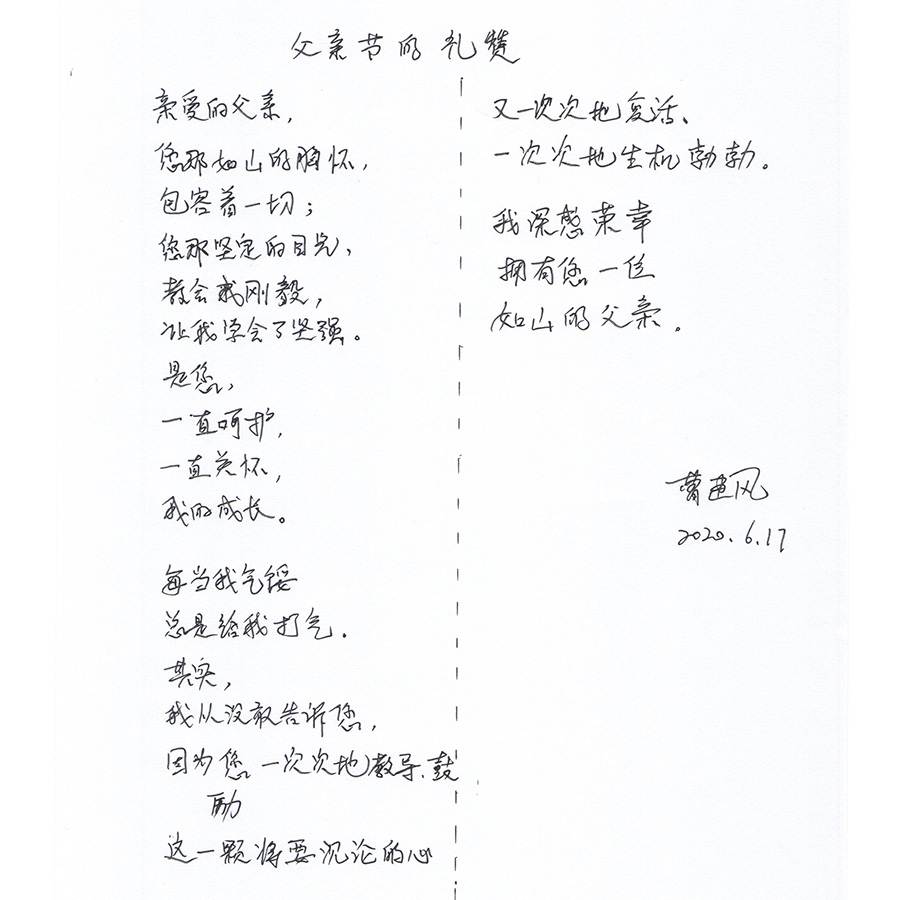 父亲节的礼赞
亲爱的父亲,
您那如山的胸怀,
包容着一切;
您那坚定的目光,
教会我刚毅,
让我学会了坚强。
是您,
一直呵护,
一直关怀,
我的成长。
每当我气馁
总是给我打气.
其实,
我从没敢告诉您,
因为您一次次地教导、鼓
励
这一颗将要沉沦的心
又一次次地复活、
一次次地生机勃勃。
我深感荣幸
拥有您一位
如山的父亲.
曹建风
2020.6.17